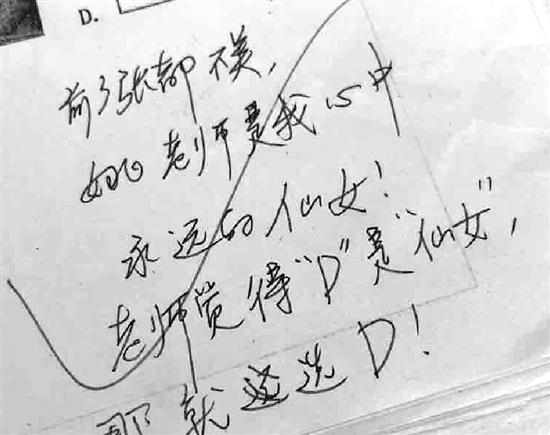 D.
前3张都不美,
老师是我心中
永远的仙女!
老师觉得“D”是“仙女”,
那就选D!